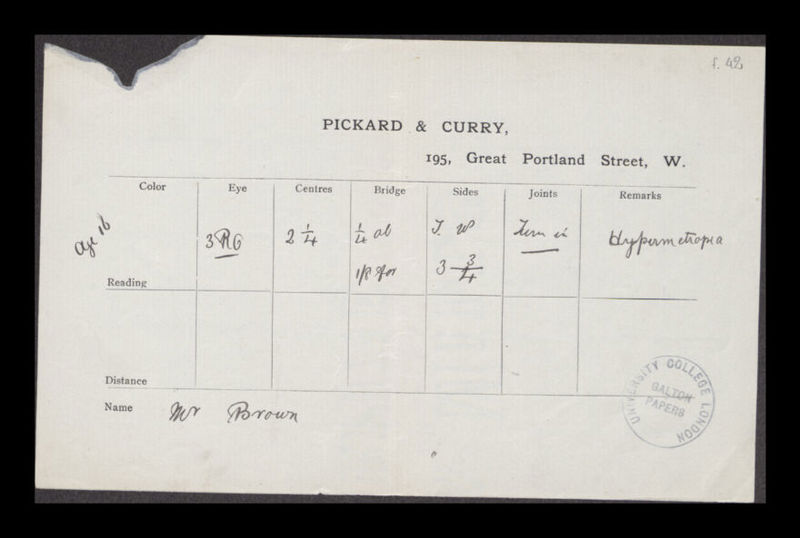 f. 42
PICKARD & CURRY,
195, Great Portland Street, W.
Color Eye Centres Bridge Sides Joints Remarks
age 18
3 RG 2 1/4 1/4 ab Turn in Hypermetropia
1/8 for 3 3/4
Reading
Distance
Name Mr Brown
UNIVERSITY COLLEGE LONDON
GALTON
PAPERS